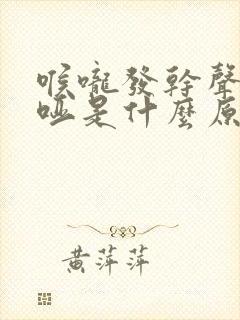 喉嚨發幹聲
啞是什麼原
黃萍萍